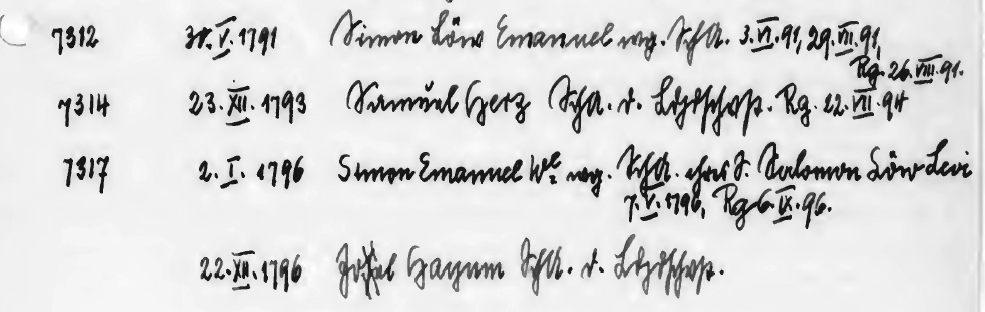 7312 31.V.1791 Simon Löw Emanuel wg. SchA. 3.VI.91, 29.VII.91,
Rg. 26.VIII.91.
7314 23.XII.1793 Samuel Herz SchA. d. Ldschaft. Rg. 22.VII.94
7317 2.I.1796 Simon Emanuel We wg. SchA. ihres S. Salomon Löw Levi
7.V.1796, Rg 6.IX.96.
22.XII.1796 Hayum SchA. d. Ldschaft.